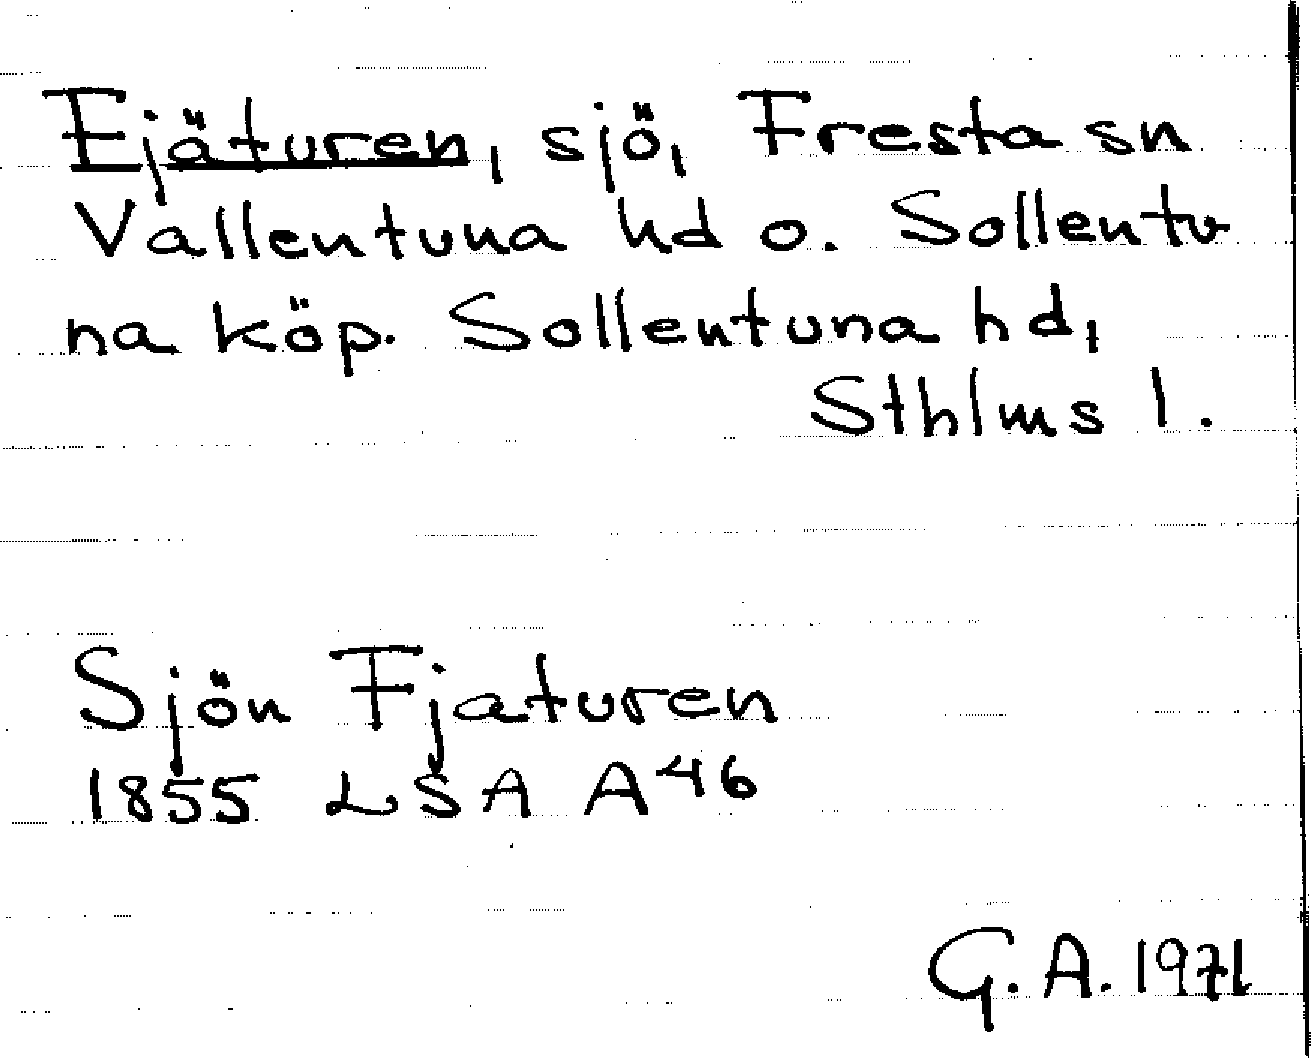 Fjäturen, sjö, Fresta sn
Vallentuna hd o. Sollentu
na köp. Sollentuna hd,
Sthlms l.
Sjön Fjaturen
1855 LSA A46
G.A. 1971